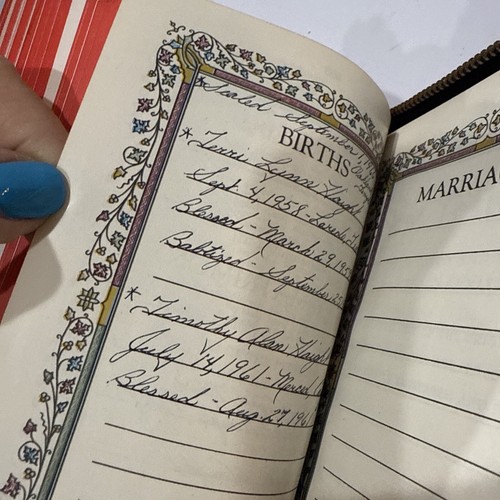 *Sealed September 1,
BIRTHS
* Terri Lynn Haigh
Sept. 4, 1958 -
Blessed - March 29, 195
Baptized - September 
* Timothy Alan Haigh
July 14, 1961 - Merced,
Blessed - Aug. 27, 196
MARRIA